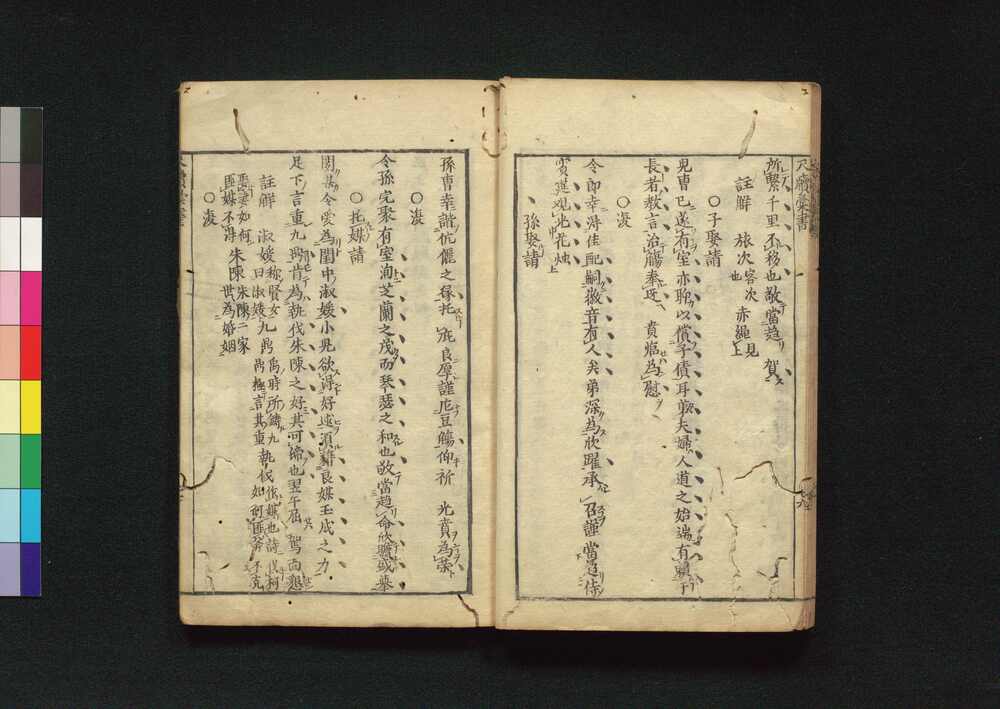 尺牘
所繫千里不移也敬當趨賀
註解 旅次客次也 赤繩見上
○子娶請
兒曹已遂有室亦聊以償子債耳第夫婦人道之始端有賴于
長者教言治觴奉迓 賁臨為慰
○復
令郎幸得佳配嗣徽音有人矣弟深為欣躍承 召謹當趨侍
賓筵观光花烛
孫娶請
孫曹幸諧伉儷之緣托 庇良厚謹卮豆觴仰祈 光賁為榮
○復
令孫完聚有室洵芝蘭之茂而琴瑟之和也敬當趨命欣
○托媒請
聞某令愛為閨中淑媛小兒欲得好逑須藉良媒玉成之力
足下言重九鼎肯為執伐朱陳之好其可諦也翌午屈 駕面懇
註解 淑媛称賢女曰淑媛 九鼎禹時所鑄九鼎極言其重 執伐作媒也詩伐柯如何匪斧不克
娶妻如何匪媒不得 朱陳朱陳二家世為婚姻
○復